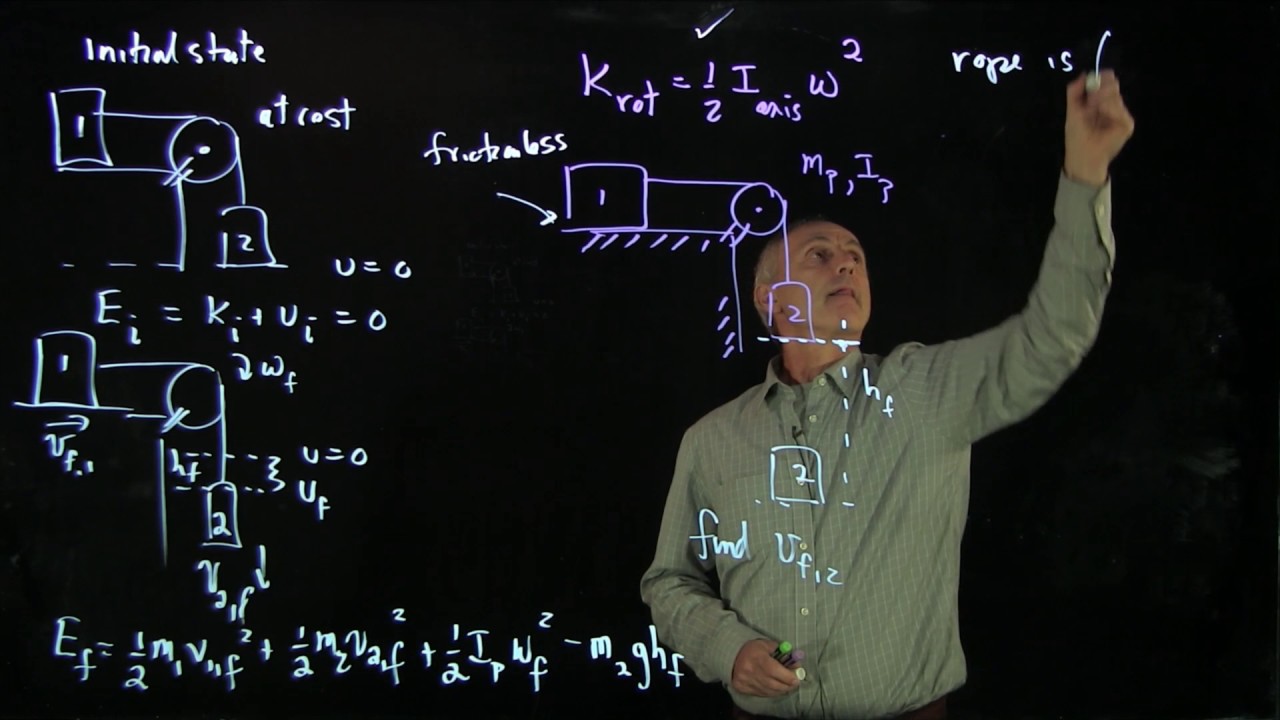 initial state
1
at cost
2
u = 0
E_i = K_i + U_i = 0
1
ω_f
v_f,1
h_f
u = 0
U_f
2
v_2,f
E_f = 1/2 m_1 v_1,f^2 + 1/2 m_2 v_2,f^2 + 1/2 I_p ω_f^2 - m_2 g h_f
K_rot = 1/2 I_axis ω^2
frictionless
1
m_p, I_p
2
h_f
2
find v_f,2
rope is